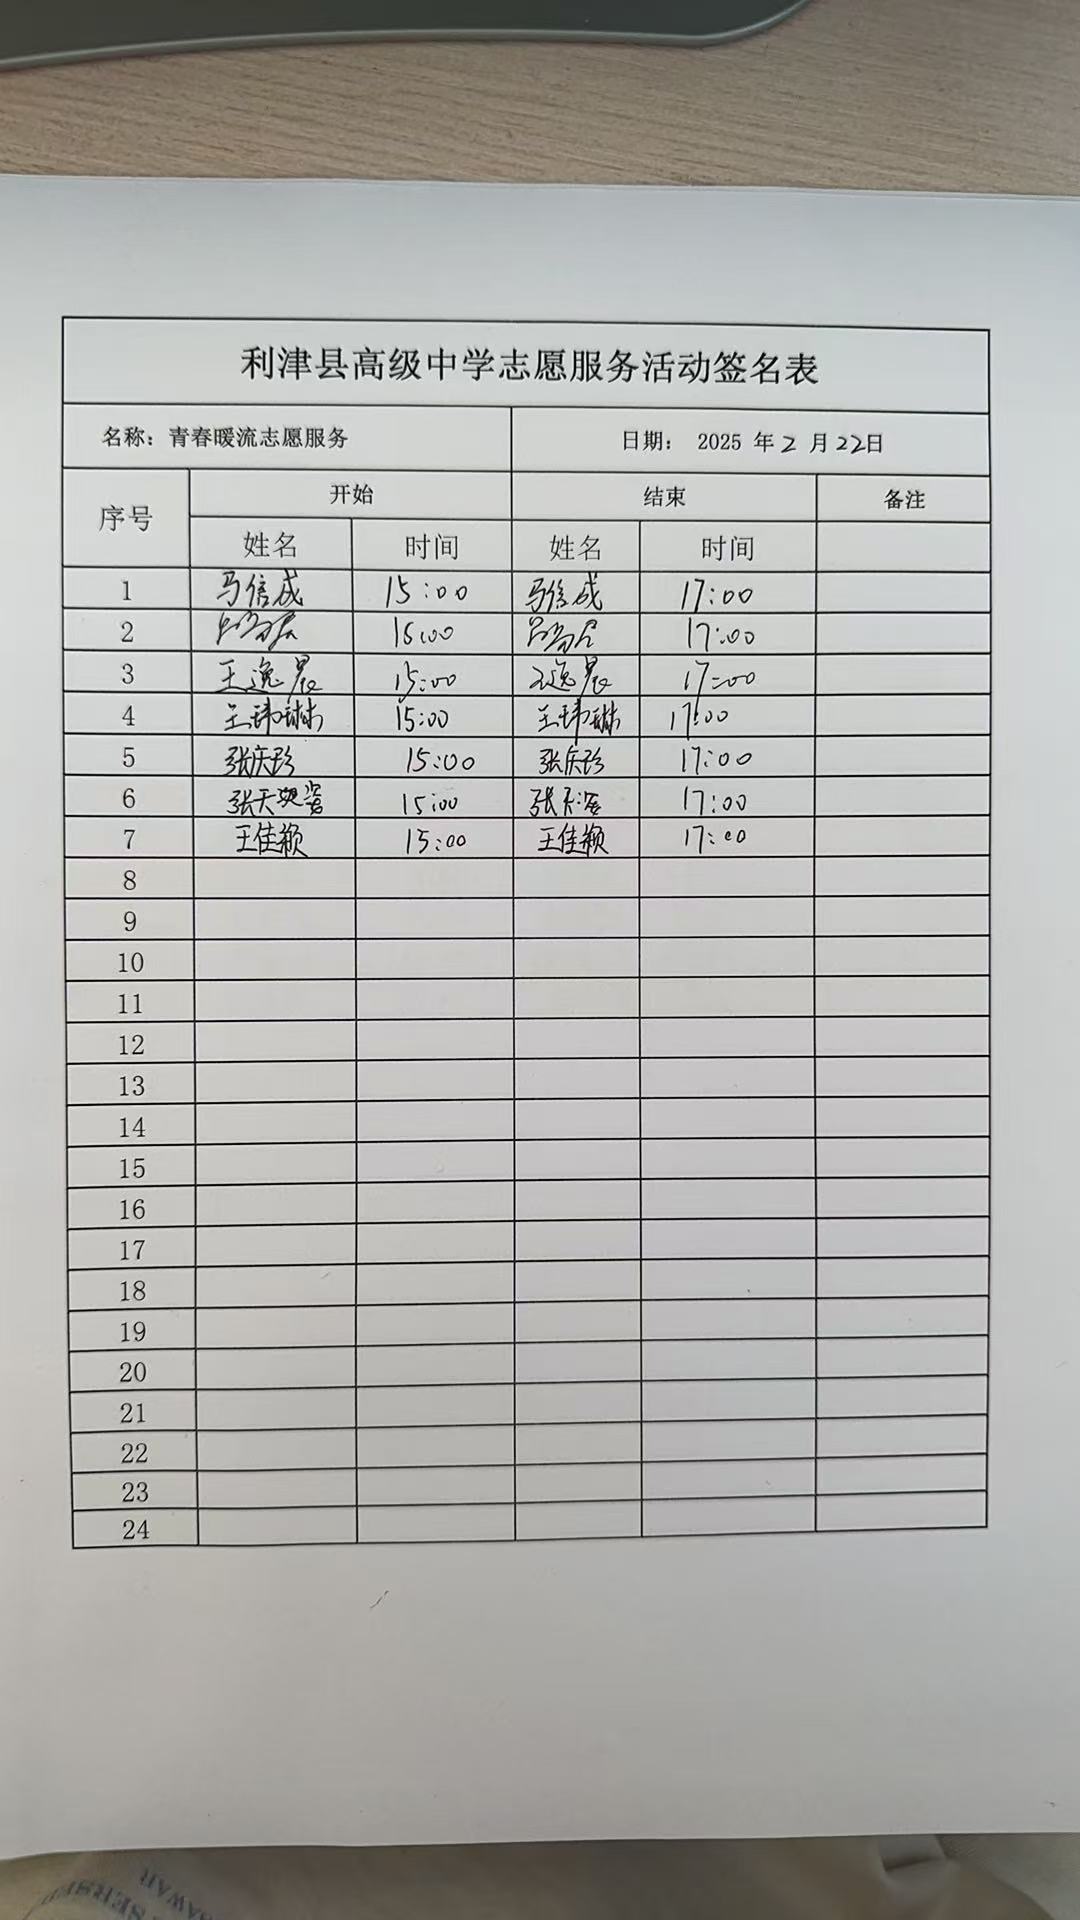 利津县高级中学志愿服务活动签名表
名称：青春暖流志愿服务 日期： 2025 年2 月22日
序号 开始 结束 备注
姓名 时间 姓名 时间
1 马信成 15:00 马信成 17:00
2 16:00 17:00
3 王逸晨 15:00 王逸晨 17:00
4 王玮琳 15:00 王玮琳 17:00
5 张庆珍 15:00 张庆珍 17:00
6 张天 15:00 张天 17:00
7 王佳颖 15:00 王佳颖 17:00
8
9
10
11
12
13
14
15
16
17
18
19
20
21
22
23
24